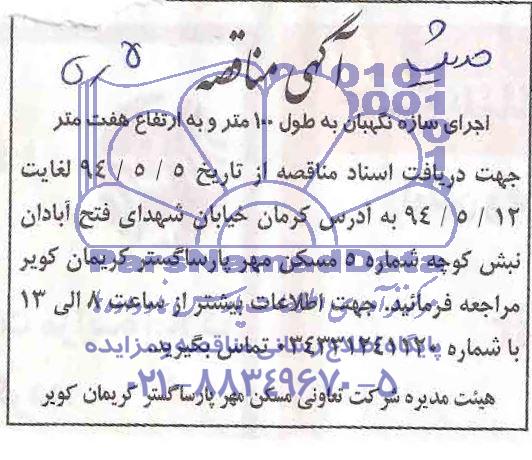 آگهی مناقصه
اجرای سازه نگهبان به طول ۱۰۰ متر و به ارتفاع هفت متر
جهت دریافت اسناد مناقصه از تاریخ ۵ / ۵ / ۹٤ لغایت
۱۲ / ۵ / ۹٤ به آدرس کرمان خیابان شهدای فتح آبادان
نبش کوچه شماره ۵ مسکن مهر پارساگستر کریمان کویر
مراجعه فرمائید. جهت اطلاعات بیشتر از ساعت ۸ الی ۱۳
با شماره ۰۳٤۳۳۱۲٤۱۱۲۰ تماس بگیرید.
هیئت مدیره شرکت تعاونی مسکن مهر پارساگستر کریمان کویر
۰۲۱-۸۸۳۴۹۶۷۰-۵